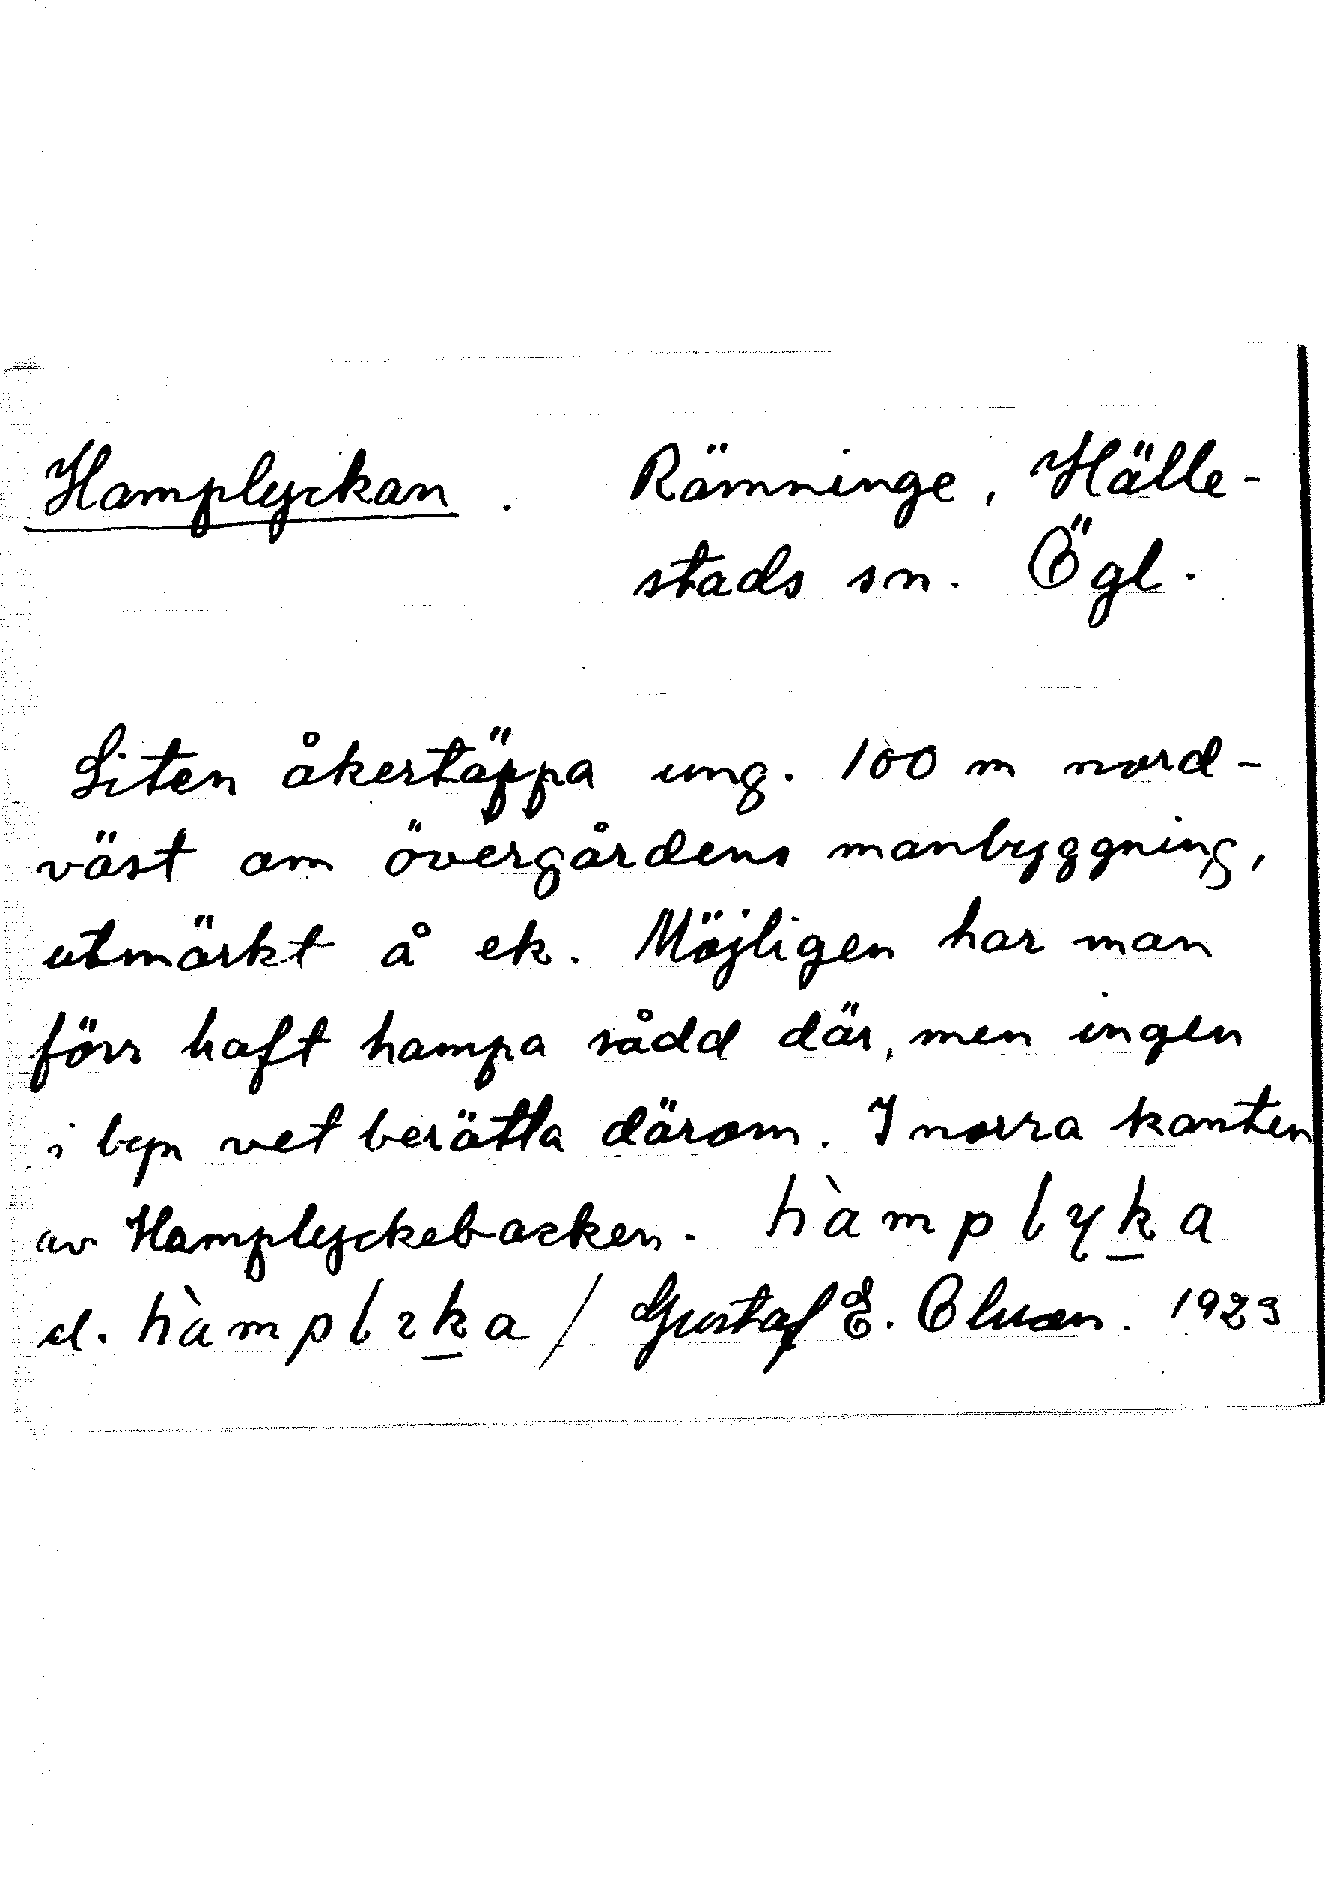 Hamplyckan. Rämninge, Hälle-
stads sn. Ögl.
Liten åkertäppa ung. 100 m nord-
väst om övergårdens manbyggning,
utmärkt å ek. Möjligen har man
förr haft hampa sådd där, men ingen
i byn vet berätta därom. I norra kanten
av Hamplyckebacken. hàmplyka
el. hàmplıka / Gustaf E. 1923